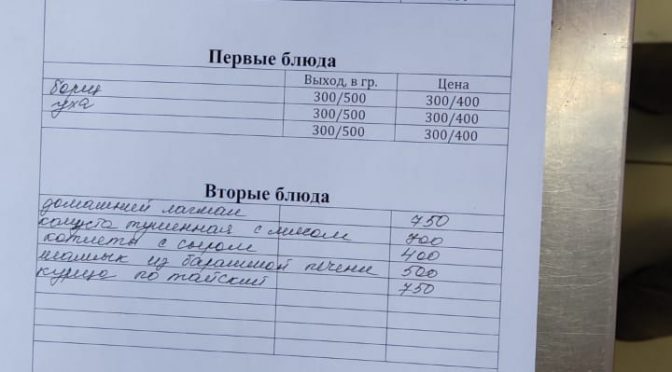 Первые блюда
Выход, в гр. Цена
борщ 300/500 300/400
уха 300/500 300/400
300/500 300/400
Вторые блюда
домашний лагман 750
капуста тушенная с мясом 700
котлеты с сыром 400
шашлык из бараньей печени 500
курица по тайский 750